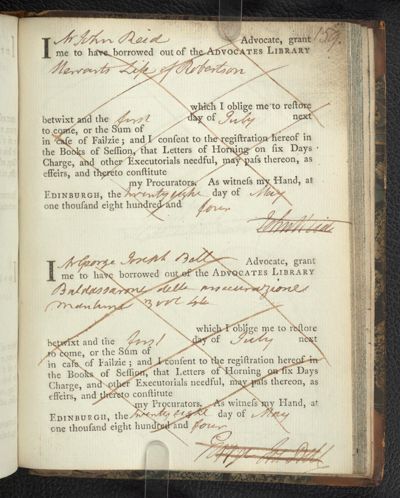 159.
I Mr John Reid Advocate, grant
me to have borrowed out of the ADVOCATES LIBRARY
Stewarts Life of Robertson
which I oblige me to restore
betwixt and the first day of July next
to come, or the Sum of
in case of Failzie; and I consent to the registration hereof in
the Books of Session, that Letters of Horning on six Days
Charge, and other Executorials needful, may pass thereon, as
effeirs, and thereto constitute
my Procurators. As witness my Hand, at
EDINBURGH, the twenty eight day of May
one thousand eight hundred and four
John Reid
I Mr George Joseph Bell Advocate, grant
me to have borrowed out of the ADVOCATES LIBRARY
Baldasseroni delle assecurazione
maritime 3 vol 4to
which I oblige me to restore
betwixt and the first day of July next
to come, or the Sum of
in case of Failzie; and I consent to the registration hereof in
the Books of Session, that Letters of Horning on six Days
Charge, and other Executorials needful, may pass thereon, as
effeirs, and thereto constitute
my Procurators. As witness my Hand, at
EDINBURGH, the twenty eight day of May
one thousand eight hundred and four
Bell